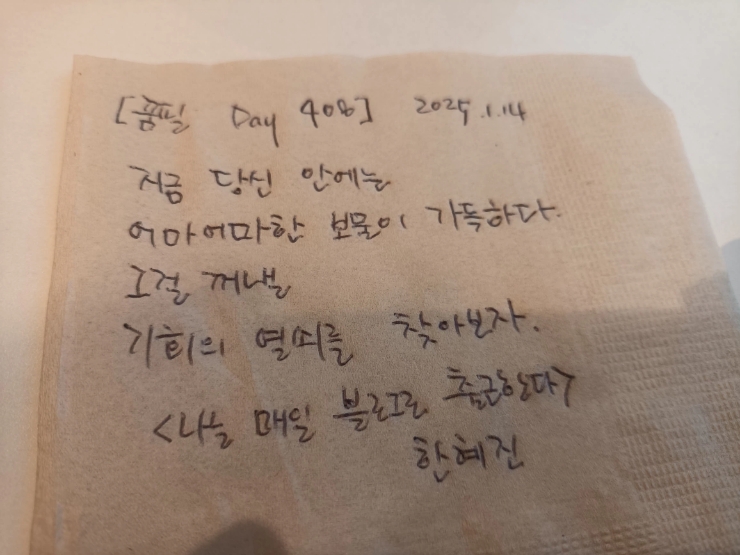 [품필 Day 408] 2025.1.14
지금 당신 안에는
어마어마한 보물이 가득하다.
그걸 꺼낼
기회의 열쇠를 찾아보자.
<나는 매일 블로그로 출근한다>
한혜진